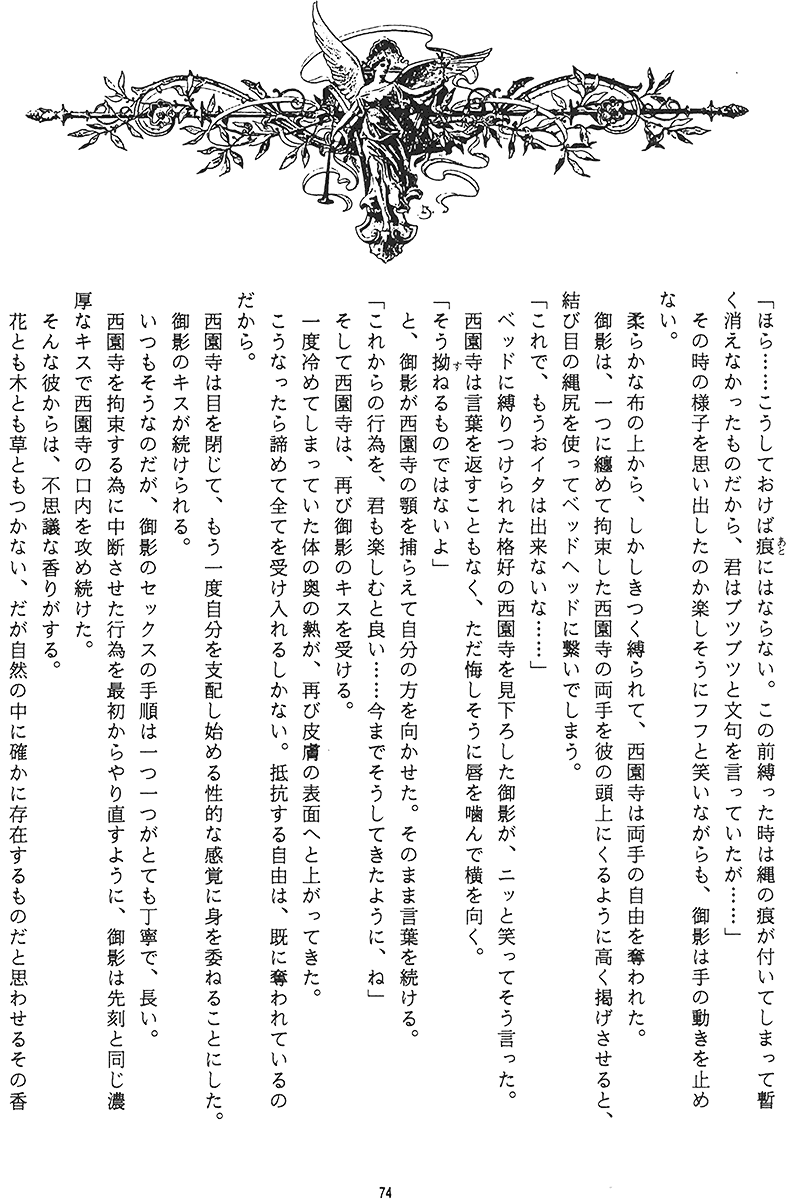 「ほら……こうしておけば痕にはならない。この前縛った時は縄の痕が付いてしまって暫
く消えなかったものだから、君はブツブツと文句を言っていたが……」
その時の様子を思い出したのか楽しそうにフフと笑いながらも、御影は手の動きを止め
ない。
柔らかな布の上から、しかしきつく縛られて、西園寺は両手の自由を奪われた。
御影は、一つに纏めて拘束した西園寺の両手を彼の頭上にくるように高く掲げさせると、
結び目の縄尻を使ってベッドヘッドに繋いでしまう。
「これで、もうおイタは出来ないな……」
ベッドに縛りつけられた格好の西園寺を見下ろした御影が、ニッと笑ってそう言った。
西園寺は言葉を返すこともなく、ただ悔しそうに唇を噛んで横を向く。
「そう拗ねるものではないよ」
と、御影が西園寺の顎を捕らえて自分の方を向かせた。そのまま言葉を続ける。
「これからの行為を、君も楽しむと良い……今までそうしてきたように、ね」
そして西園寺は、再び御影のキスを受ける。
一度冷めてしまっていた体の奥の熱が、再び皮膚の表面へと上がってきた。
こうなったら諦めて全てを受け入れるしかない。抵抗する自由は、既に奪われているの
だから。
西園寺は目を閉じて、もう一度自分を支配し始める性的な感覚に身を委ねることにした。
御影のキスが続けられる。
いつもそうなのだが、御影のセックスの手順は一つ一つがとても丁寧で、長い。
西園寺を拘束する為に中断させた行為を最初からやり直すように、御影は先刻と同じ濃
厚なキスで西園寺の口内を攻め続けた。
そんな彼からは、不思議な香りがする。
花とも木とも草ともつかない、だが自然の中に確かに存在するものだと思わせるその香
74